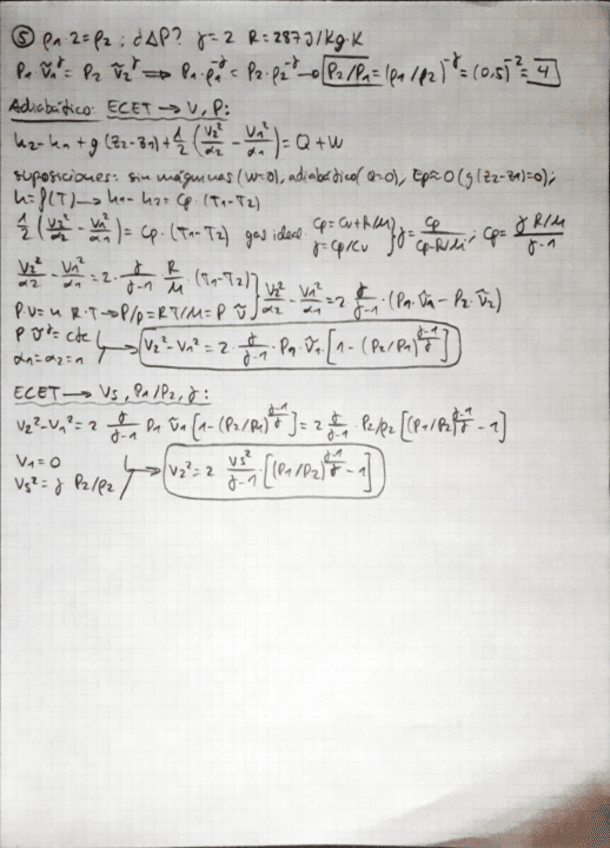 ⑤ ρ₁·2=ρ₂ ; ¿ΔP? γ=2 R=287 J/Kg·K
P₁ ṽ₁^γ = P₂ ṽ₂^γ ⟹ P₁·ρ₁^-γ = P₂·ρ₂^-γ → P₂/P₁ = (ρ₁/ρ₂)^-γ = (0,5)^-2 = 4
Adiabático: ECET → V, P:
h₂-h₁ + g (z₂-z₁) + 1/2 (V₂²/α₂ - V₁²/α₁) = Q + W
suposiciones: sin máquinas (W=0), adiabático (Q=0), Ep≈0 (g(z₂-z₁)=0);
h=f(T) → h₁-h₂ = Cp·(T₁-T₂)
1/2 (V₂²/α₂ - V₁²/α₁) = Cp·(T₁-T₂) gas ideal: Cp=Cv+R/M γ=Cp/Cv } γ = Cp/(Cp-R/M) ; Cp = (γ R/M)/(γ-1)
V₂²/α₂ - V₁²/α₁ = 2· γ/(γ-1) · R/M · (T₁-T₂) } V₂²/α₂ - V₁²/α₁ = 2 γ/(γ-1) · (P₁·ṽ₁ - P₂·ṽ₂)
P·V = n R·T → P/ρ = RT/M = P ṽ
P ṽ^γ = cte
α₁=α₂=1 → V₂²-V₁² = 2· γ/(γ-1) · P₁·ṽ₁·[1-(P₂/P₁)^((γ-1)/γ)]
ECET → Vs, P₁/P₂, γ:
V₂²-V₁² = 2 γ/(γ-1) P₁ ṽ₁ [1-(P₂/P₁)^((γ-1)/γ)] = 2 γ/(γ-1) · P₂/ρ₂ [(P₁/P₂)^((γ-1)/γ) - 1]
V₁=0
Vs² = γ P₂/ρ₂ → V₂² = 2 Vs²/(γ-1) · [(P₁/P₂)^((γ-1)/γ) - 1]